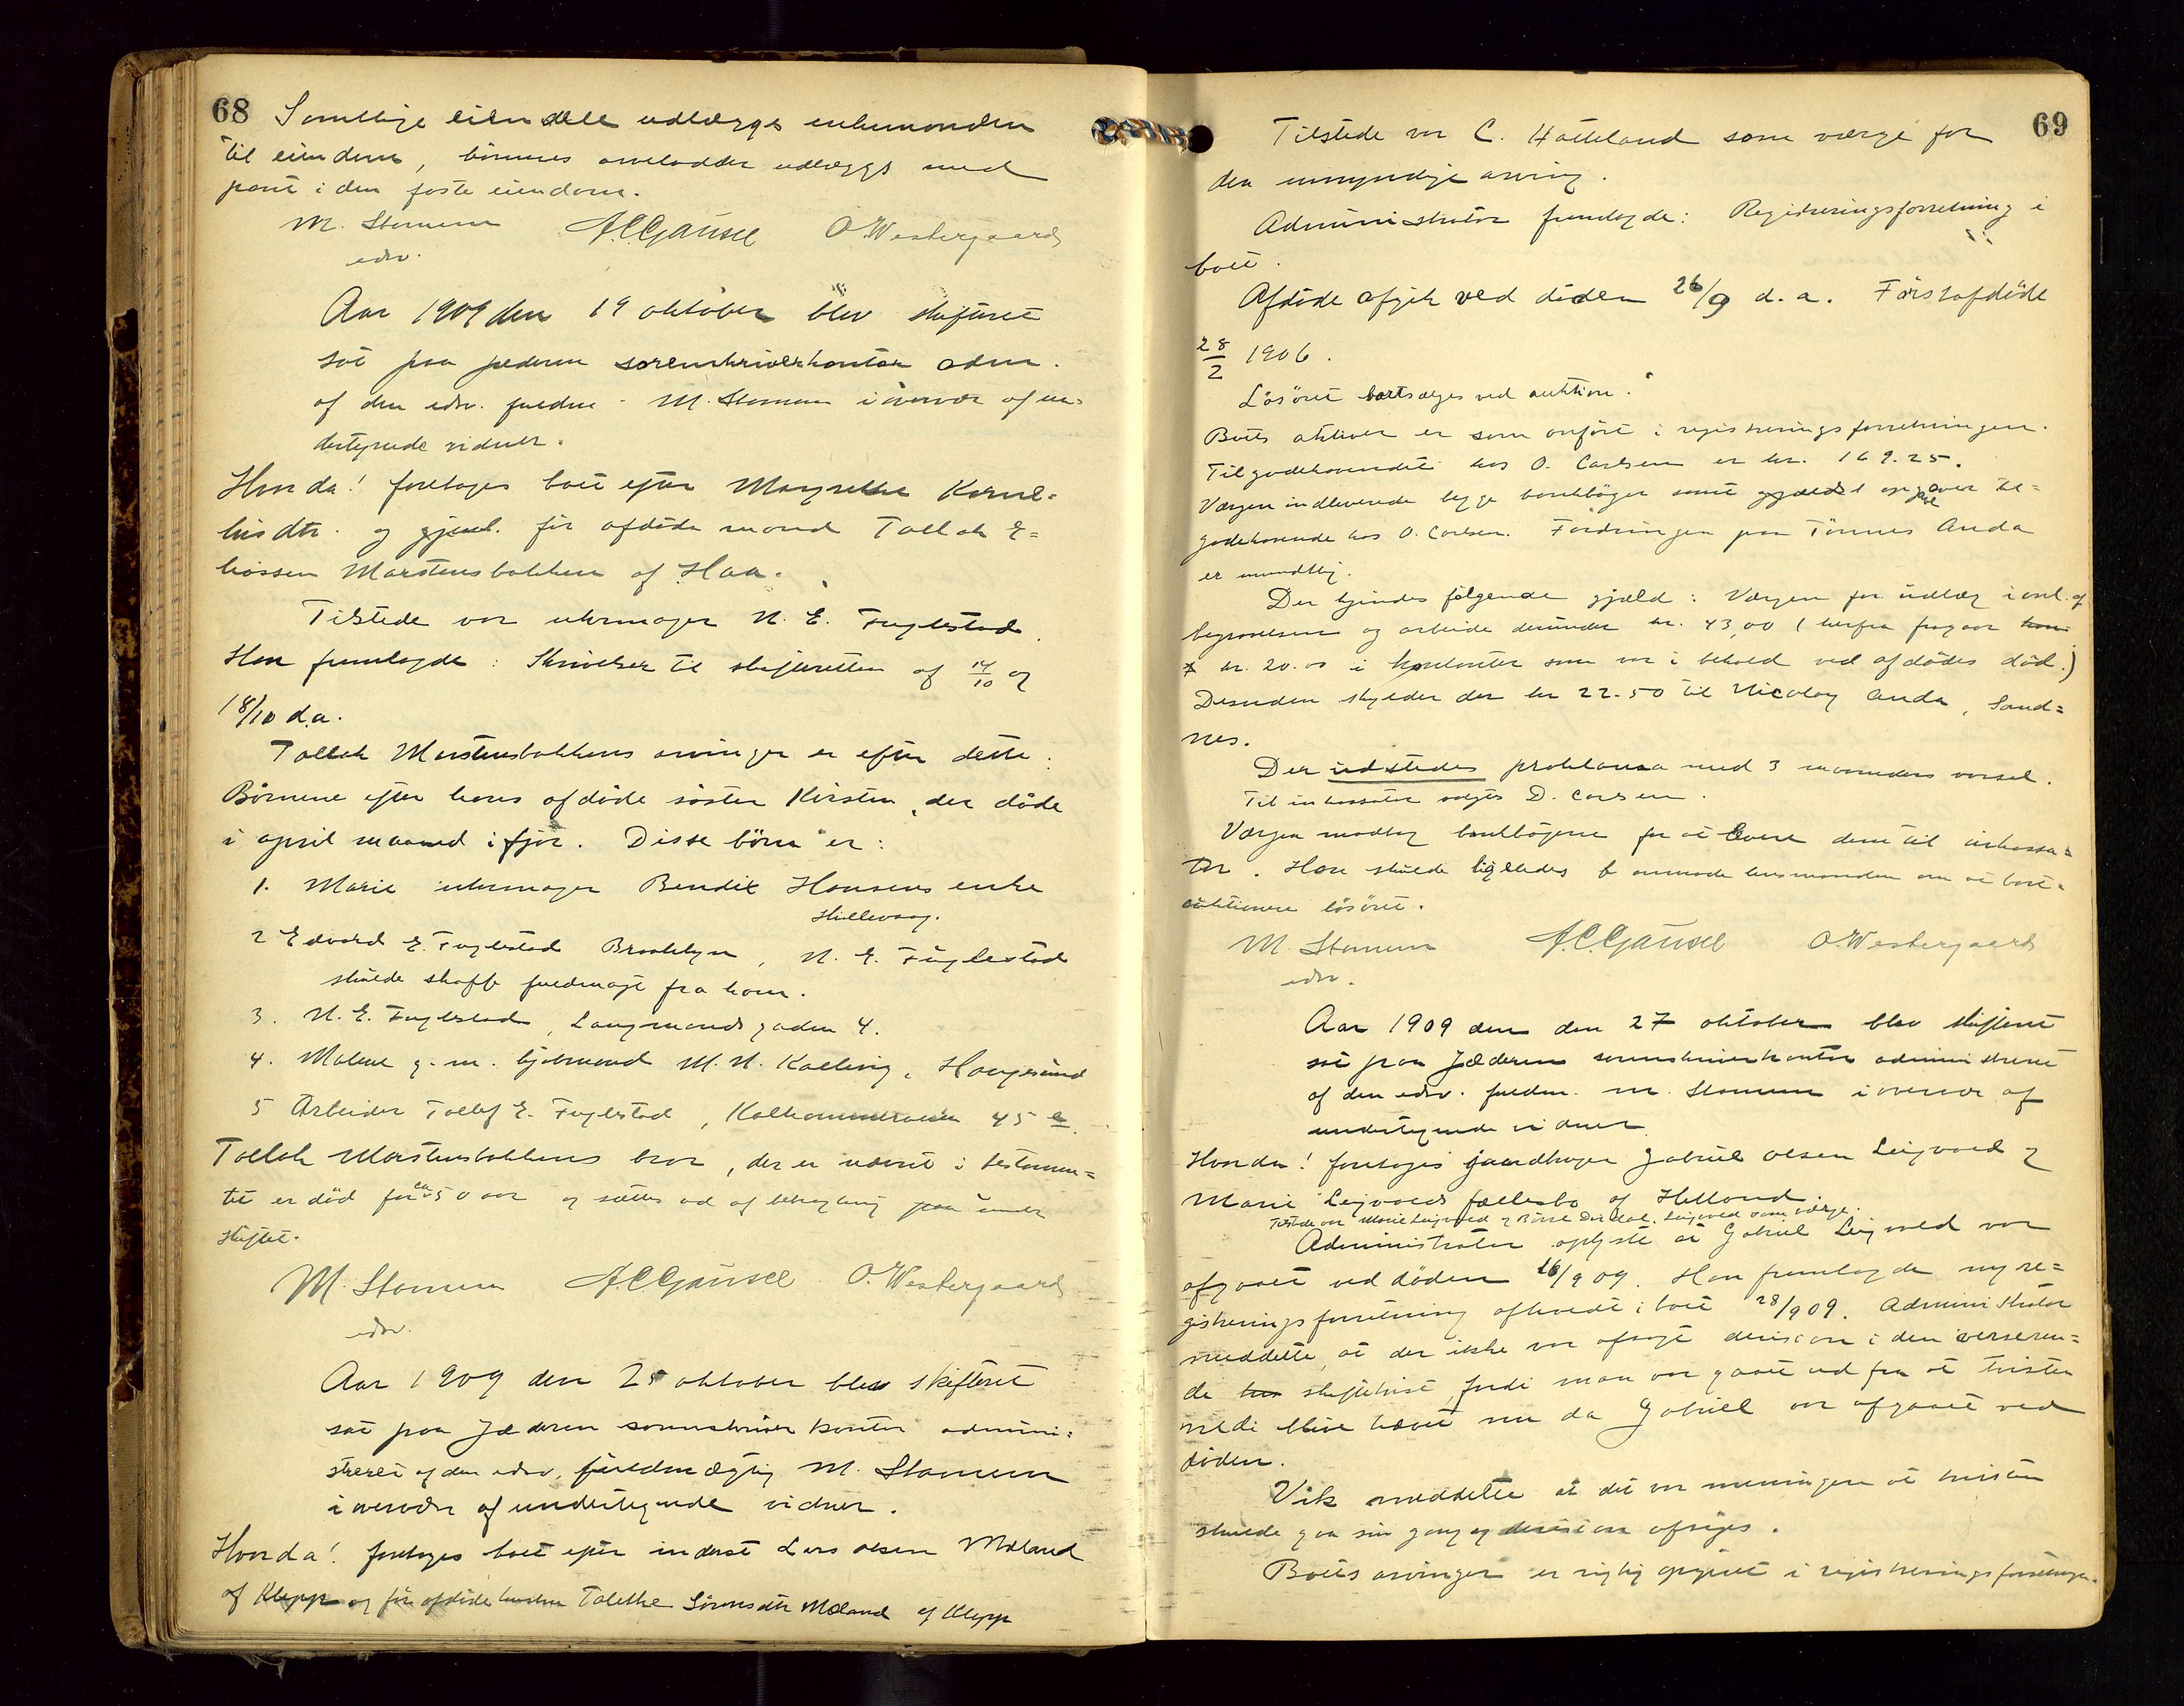 68
Samtlige eiendele udlægges enkemanden
til eiendom, börnenes arvelodder udlægges med
pant i den faste eiendom.
M. Stomem A.C. Gausel O. Westergaard
edsv.
Aar 1909 den 19 oktober blev skifteret
sat paa jæderen sorenskriverkontor adm.
af den edsv. fuldm. M. Stomem i overvær af un-
dertegnede vidner.
Hvorda! foretages boet efter Margrethe Kornel-
iusdtr. og gjenl. för afdöde mand Tollak E-
liassen Marstensbakken af Haa.
Tilstede var uhrmager N. E. Fuglestad.
Han fremlagde: Skrivelser til skifteretten af 14/10 og
18/10 d.a.
Tollak Marstensbakkens arvinger er efter dette:
Börnene efter hans afdöde söster Kirsten, der döde
i april maaned ifjor. Disse börn er:
1. Marie uhrmager Bendix Hansens enke
Hillevaag.
2 Edvard E. Fuglestad Brooklyn, N. E. Fuglestad
skulde skaffe fuldmagt fra ham.
3. N. E. Fuglestad, Langmandsgaden 4.
4. Malene g. m. kjöbmand M. N. Kallevig, Haugesund
5 Arbeider Tollef E. Fuglestad, 45
Tollak Marstensbakkens bror, der er nævnt i testamen-
tet er död for ca 50 aar og sættes ud af betragtning paa
skiftet.
M. Stomem A.C. Gausel O. Westergaard
edsv.
Aar 1909 den 25 oktober blev skifteret
sat paa Jæderen sorenskriverkontor admini-
streret af den edsv. fuldmægtig M. Stomem
i overvær af undertegnede vidner.
Hvorda! foretages boet efter inderst Lars Olsen Mæland
af Klepp og för afdöde hustru Talethe Sörensdtr Mæland af Klepp
69
Tilstede var C. Hatteland som værge for
den umyndige arving.
Administrator fremlagde: Registreringsforretning i
boet.
Afdöde afgik ved döden 26/9 d.a. Förstafdöde
28/2 1906.
Lösöret bortsælges ved auktion.
Boets aktiver er som anfört i registreringsforretningen.
Tilgodehavendet hos O. Carlsen er kr. 169.25.
Værgen indleverede begge bankböger samt opgjör over til-
godehavende hos O. Carlsen. Fordringen paa Tönnes Anda
er mundtlig.
Der findes fölgende gjæld: Værgen for udlæg i anl. af
begravelsen og arbeide derunder kr. 43,00 (herfra fragaar
kr. 20.00 i kontanter som var i behold ved afdödes död.)
Desuden skylder der kr 22.50 til Nicolay Anda, Sand-
nes.
Der udstedes proklama med 3 maaneders varsel.
Til inkassator valgtes D. Carlsen.
Værgen modtog bankbögerne for at levere dem til inkassa-
tor. Han skulde ligeledes anmode lensmanden om at bort-
auktionere lösöret.
M. Stomem A.C. Gausel O. Westergaard
edsv.
Aar 1909 den den 27 oktober blev skifteret
sat paa Jæderen sorenskriverkontor administreret
af den edsv. fuldm. M. Stomem i overvær af
undertegnede vidner
Hvorda! foretages gaardbruger Gabriel Olsen Leigvold og
Marie Leigvolds fællesbo af Hetland.
Tilstede var Marie Leigvold og Leigvold som værge.
Administrator oplyste at Gabriel Leigvold var
afgaaet ved döden 16/9 09. Han fremlagde ny re-
gistreringsforretning afholdt i boet 28/9 09. Administrator
meddelte, at der ikke var afsagt decision i den verseren-
de skiftetvist, fordi man var gaaet ud fra at tvisten
vilde blive hævet nu da Gabriel var afgaaet ved
döden.
Vik meddelte at det var meningen at tvisten
skulde gaa sin gang og decision afsiges.
Boets arvinger er rigtig opgivet i registreringsforretningen.